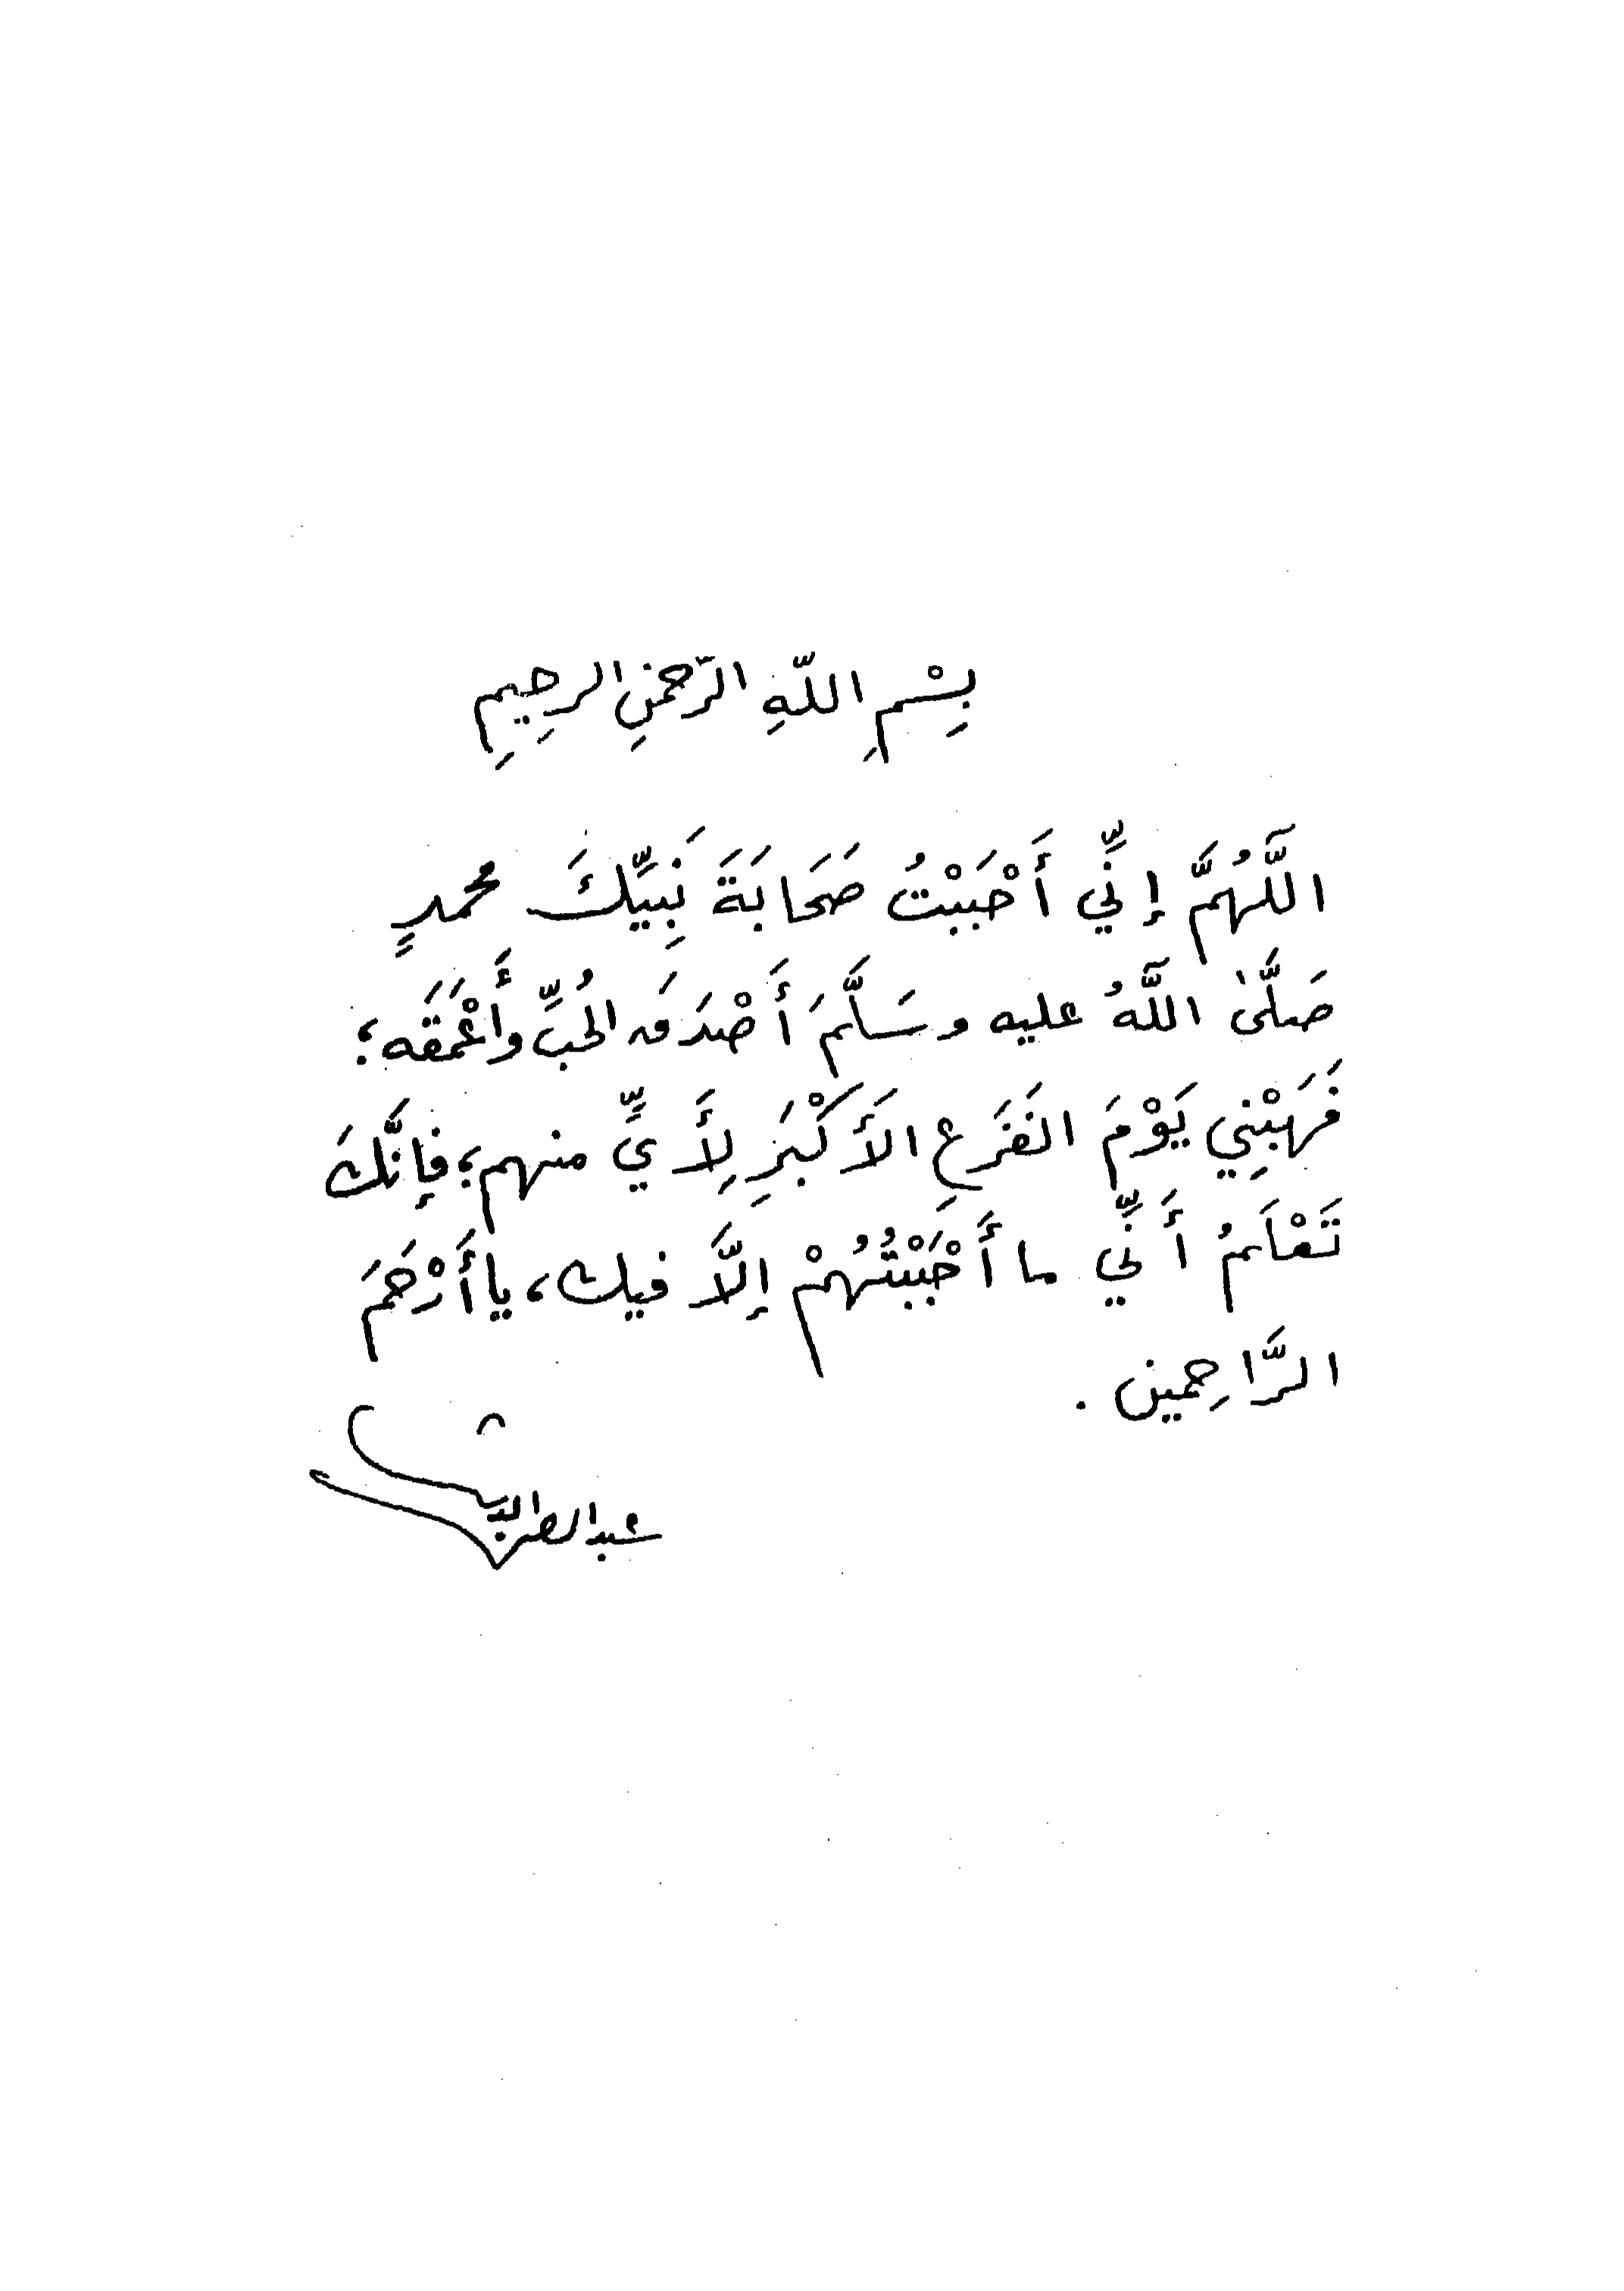 بِسْمِ اللّهِ الرّحمٰنِ الرحِيمِ
اللَّهُمَّ إنِّي أَحْبَبْتُ صَحَابَةَ نَبِيِّكَ محمدٍ
صَلَّىٰ اللَّهُ عليه وسَلَّمَ أَصْدَقَ الحُبِّ وأَعْمَقَه؛
فَهَبْنِي يَوْمَ الفَزَعِ الأَكْبَرِ لِأَيٍّ منهم؛ فإنَّكَ
تَعْلَمُ أَنِّي ما أَحْبَبْتُهُمْ إلَّا فيك، يا أَرْحَمَ
الرَّاحِمين.